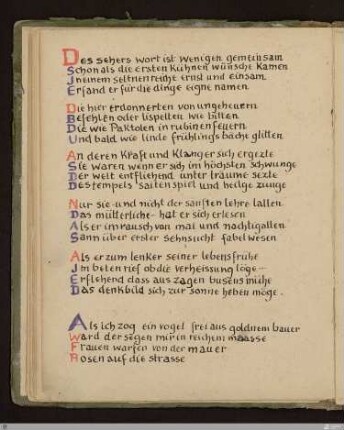 Des sehers wort ist wenigen gemeinsam
Schon als die ersten kühnen wünsche kamen
In einem seltnen reiche ernst und einsam
Erfand er für die dinge eigne namen
Die hier erdonnerten von ungeheuern
Befehlen oder lispelten wie bitten
Die wie Paktolen in rubinenfeuern
Und bald wie linde frühlings bäche glitten
An deren kraft und klang er sich ergezte
Sie waren wenn er sich im höchsten schwunge
Der welt entfliehend unter träume sezte
Des tempels saitenspiel und heilge zunge
Nur sie und nicht der sanften lehre lallen
Das mütterliche hat er sich erlesen
Als er im rausch von mai und nachtigallen
Sann über erster sehnsucht fabelwesen
Als er zum lenker seiner lebensfrühe
Im beten rief ob die verheissung löge
Erflehend dass aus zagen busens mühe
Das denkbild sich zur sonne heben möge
Als ich zog ein vogel frei aus goldnem bauer
Ward der segen mir in reichem maasse
Frauen warfen von der mauer
Rosen auf die strasse